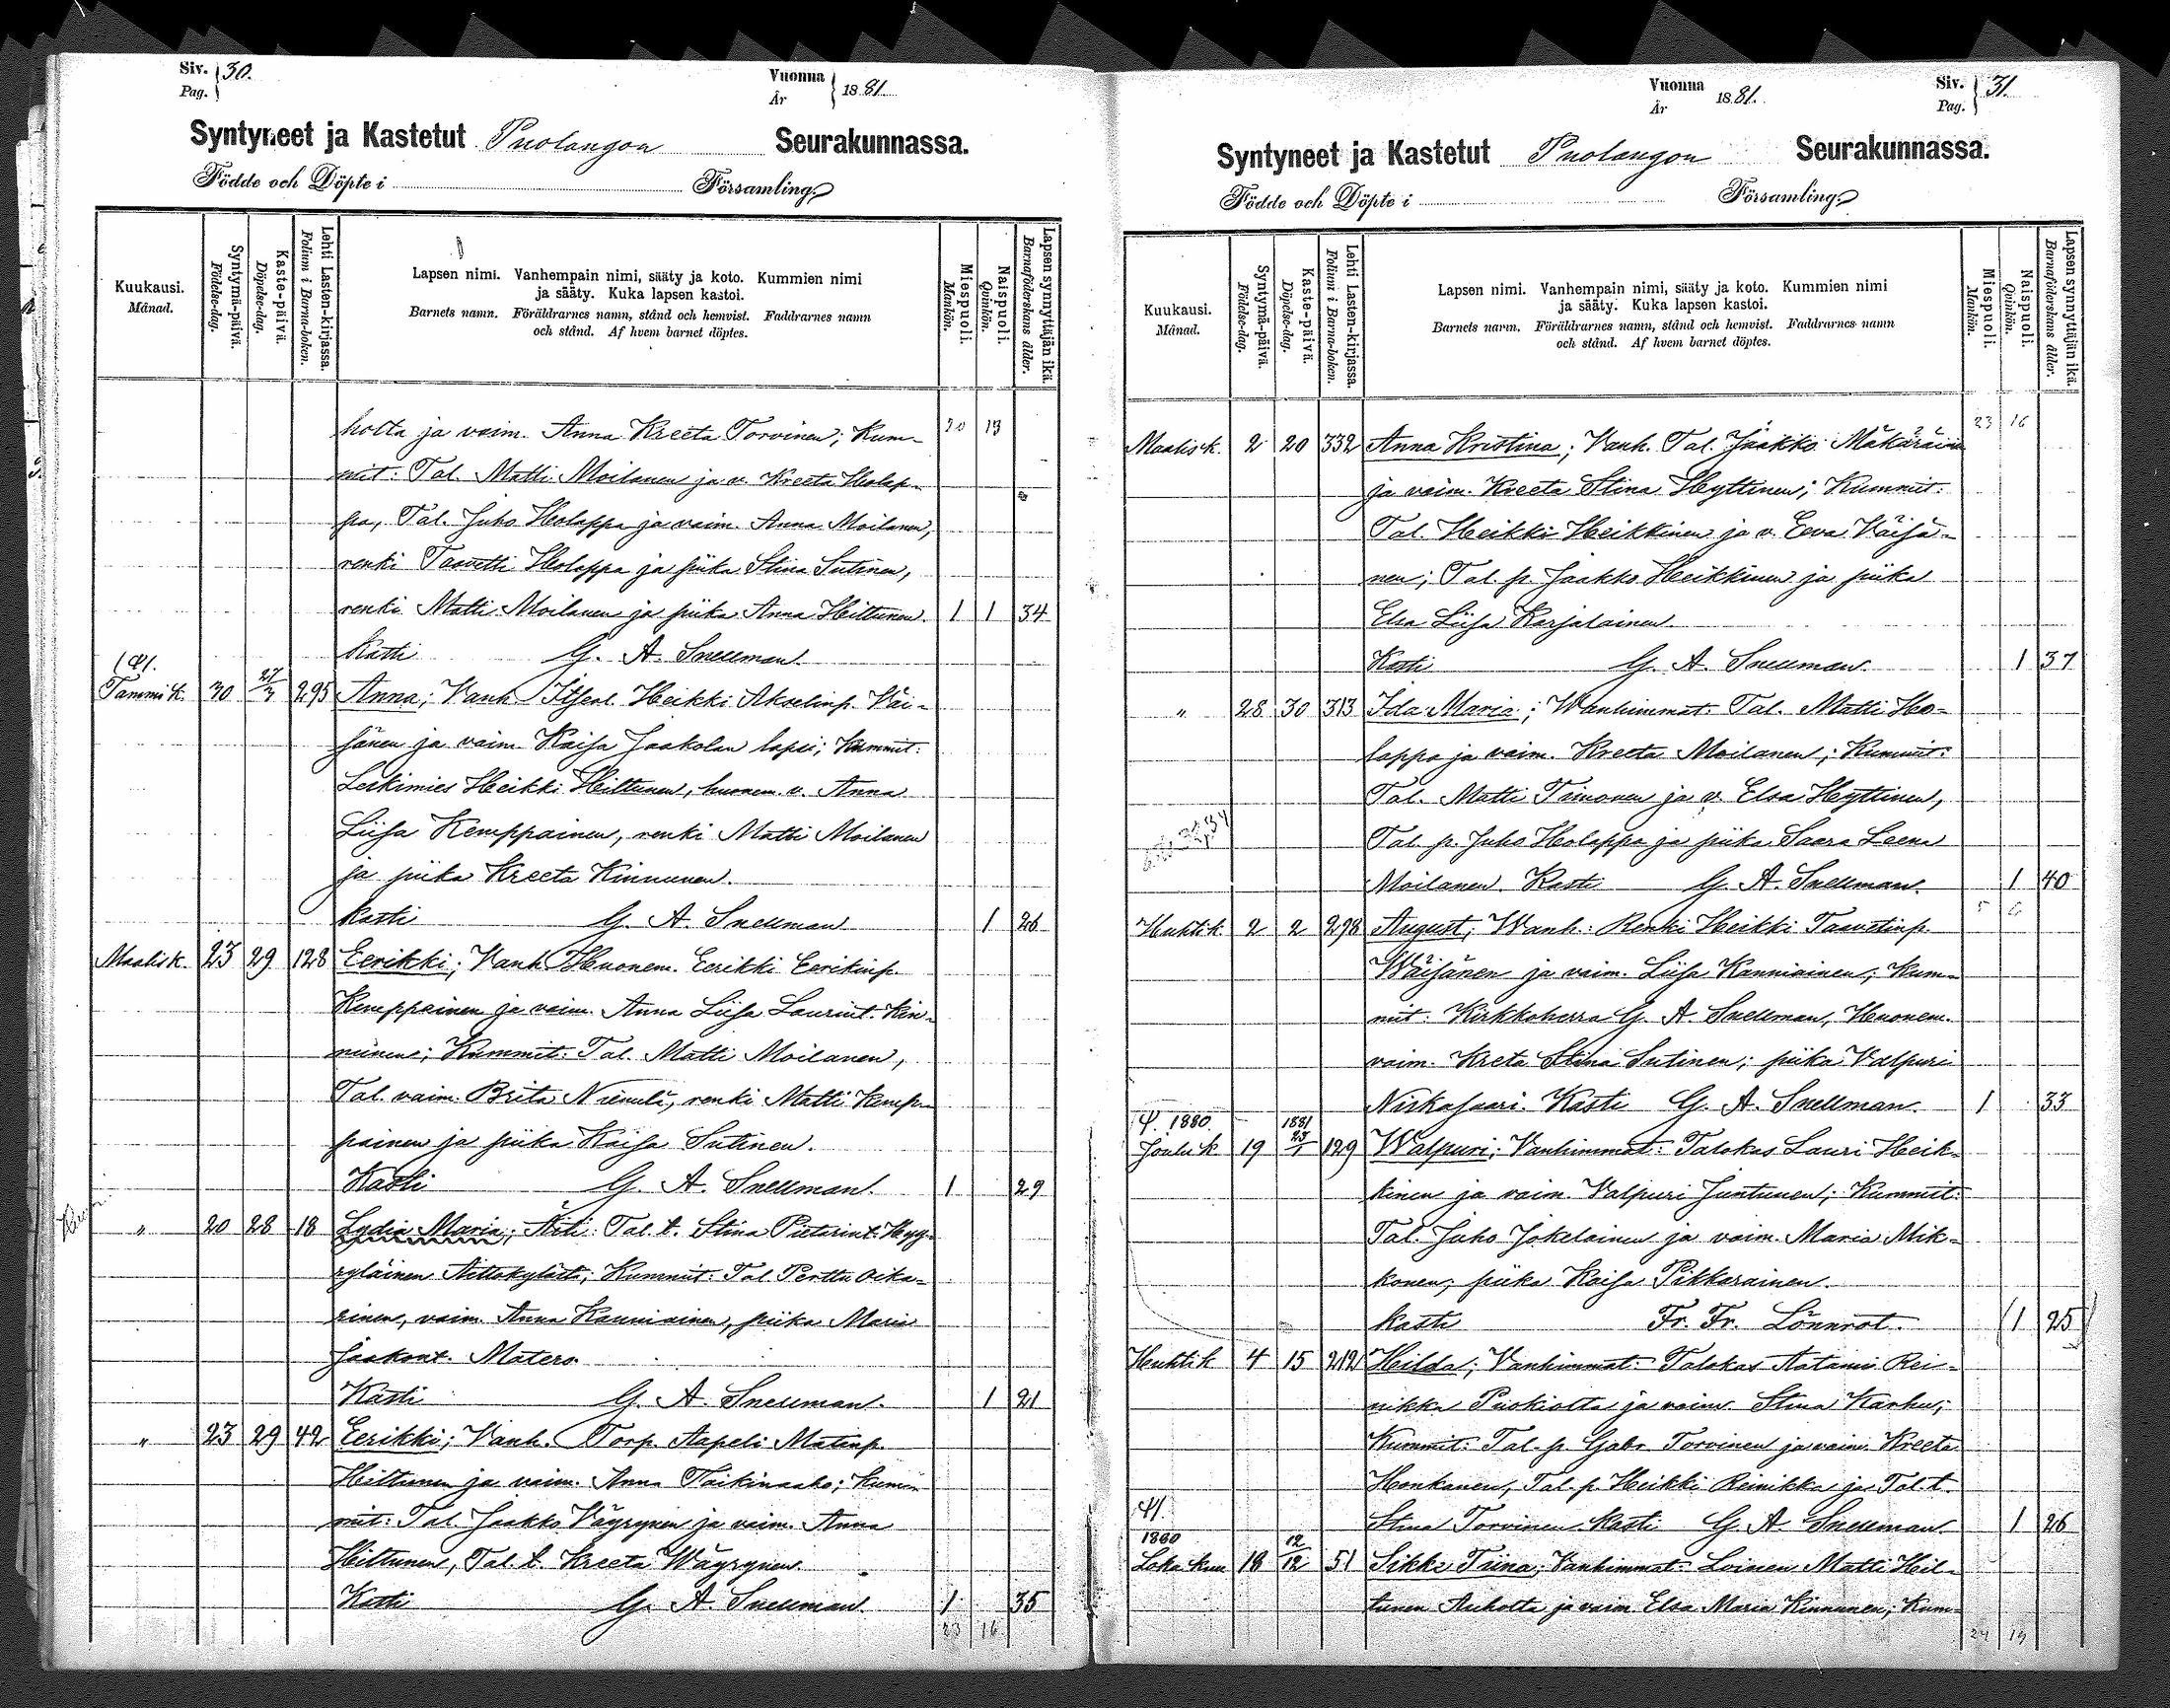 Siv. 30.
Pag.
Vuonna
År 1881.
Syntyneet ja Kastetut Puolangon Seurakunnassa.
Födde och Döpte i Församling.
Kuukausi.
Månad.
Syntymä-päivä.
Födelse-dag.
Kaste-päivä.
Döpelse-dag.
Lehti Lasten-kirjassa.
Folium i Barna-boken.
Lapsen nimi. Vanhempain nimi, sääty ja koto. Kummien nimi
ja sääty. Kuka lapsen kastoi.
Barnets namn. Föräldrarnes namn, stånd och hemvist. Faddrarnes namn
och stånd. Af hvem barnet döptes.
Miespuoli.
Mankön.
Naispuoli.
Quinkön.
Lapsen synnyttäjän ikä.
Barnaföderskans ålder.
holta ja vaim. Anna Kreeta Torvinen; Kum- 20 13
mit: Tal. Matti Moilanen ja v. Kreeta Holap-
pa, Tal. Juho Holappa ja vaim. Anna Moilanen,
renki Taavetti Holappa ja piika Stina Sutinen,
renki Matti Moilanen ja piika Anna Hiltunen. 1 1 34
Kasti G. A. Snellman.
Tammik. 30 27/3 295 Anna; Vanh. Itsell. Heikki Akselinp. Väi-
sänen ja vaim. Kaisa Jaakolan lapsi; Kummit:
Leskimies Heikki Hiltunen, huonem. v. Anna
Liisa Kemppainen, renki Matti Moilanen
ja piika Kreeta Kinnunen.
Kasti G. A. Snellman 1 26
Maalisk. 23 29 128 Eerikki; Vanh. Huonem. Eerikki Eerikinp.
Kemppainen ja vaim. Anna Liisa Laurint. Kin-
nunen; Kummit: Tal. Matti Moilanen,
Tal. vaim. Brita Niemelä, renki Matti Kemp-
painen ja piika Kaisa Sutinen.
Kasti G. A. Snellman. 1 29
" 20 28 18 Lydia Maria; Äiti: Tal. t. Stina Pietarint. Hyy-
ryläinen Aittokylältä; Kummit: Tal. Perttu Oika-
rinen, vaim. Anna Kanniainen, piika Maria
Jaakont. Matero.
Kasti G. A. Snellman. 1 21
" 23 29 42 Eerikki; Vanh. Torp. Aapeli Matinp.
Hiltunen ja vaim. Anna Taikinaaho; Kum-
mit: Tal. Jaakko Väyrynen ja vaim. Anna
Hiltunen, Tal. t. Kreeta Wäyrynen.
Kasti G. A. Snellman. 1 35
23 16
Vuonna
År 1881.
Siv. 31.
Pag.
Syntyneet ja Kastetut Puolangon Seurakunnassa.
Födde och Döpte i Församling.
Kuukausi.
Månad.
Syntymä-päivä.
Födelse-dag.
Kaste-päivä.
Döpelse-dag.
Lehti Lasten-kirjassa.
Folium i Barna-boken.
Lapsen nimi. Vanhempain nimi, sääty ja koto. Kummien nimi
ja sääty. Kuka lapsen kastoi.
Barnets namn. Föräldrarnes namn, stånd och hemvist. Faddrarnes namn
och stånd. Af hvem barnet döptes.
Miespuoli.
Mankön.
Naispuoli.
Quinkön.
Lapsen synnyttäjän ikä.
Barnaföderskans ålder.
23 16
Maalisk. 2 20 332 Anna Kristina; Vanh. Tal. Jaakko Mäkäräinen
ja vaim. Kreeta Stina Heyttinen; Kummit:
Tal. Heikki Heikkinen ja v. Eeva Väisä-
nen; Tal. p. Jaakko Heikkinen ja piika
Elsa Liisa Karjalainen.
Kasti G. A. Snellman. 1 37
" 28 30 313 Ida Maria; Wanhimmat: Tal. Matti Ho-
lappa ja vaim. Kreeta Moilanen; Kummit:
Tal. Matti Tainonen ja v. Elsa Heyttinen,
Tal. p. Juho Holappa ja piika Saara Leena
Moilanen. Kasti G. A. Snellman. 1 40
Huhtik. 2 2 298 August; Wanh: Renki Heikki Taavetinp.
Wäisänen ja vaim. Liisa Kanniainen; Kum-
mit: Kirkkoherra G. A. Snellman, Huonem.
vaim. Kreta Stina Sutinen; piika Valpuri
Niskasaari. Kasti G. A. Snellman. 1 33
1880. 1881
Jouluk 19 23/1 129 Walpuri; Vanhimmat: Talokas Lauri Heik-
kinen ja vaim. Valpuri Juntunen; Kummit:
Tal. Juho Jokelainen ja vaim. Maria Mik-
konen; piika Kaisa Pikkarainen.
Kasti Fr. Fr. Lönnrot. 1 25
Huhtik 4 15 212 Hilda; Vanhimmat: Talokas Aatami Rei-
nikka Puokiolta ja vaim. Stina Karhu;
Kummit: Tal. p. Gabr. Torvinen ja vaim. Kreeta
Honkanen, Tal. p. Heikki Reinikka ja Tal. t.
Stina Torvinen. Kasti G. A. Snellman. 1 26
1880
Loka kuu 18 12/12 51 Sikke Tiina; Vanhimmat: Loinen Matti Hil-
tunen Auholta ja vaim. Elsa Maria Kinnunen; Kum-
24 19